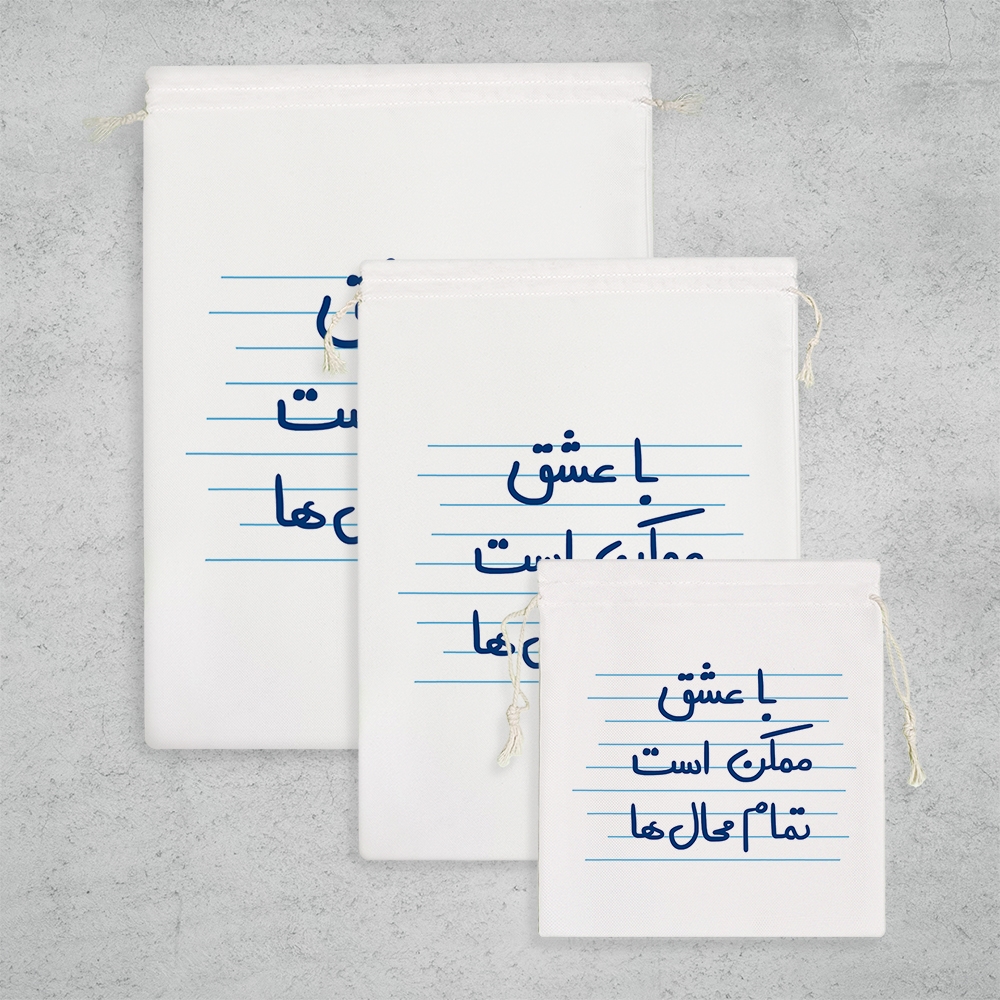 ها
با عشق
ممکن است
ها
با عشق
ممکن است
تمام محال ها